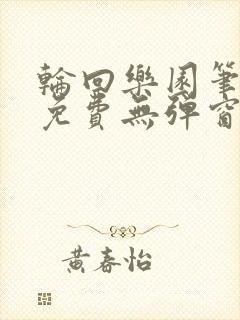 輪回樂園筆
免費無彈窗
黃春怡